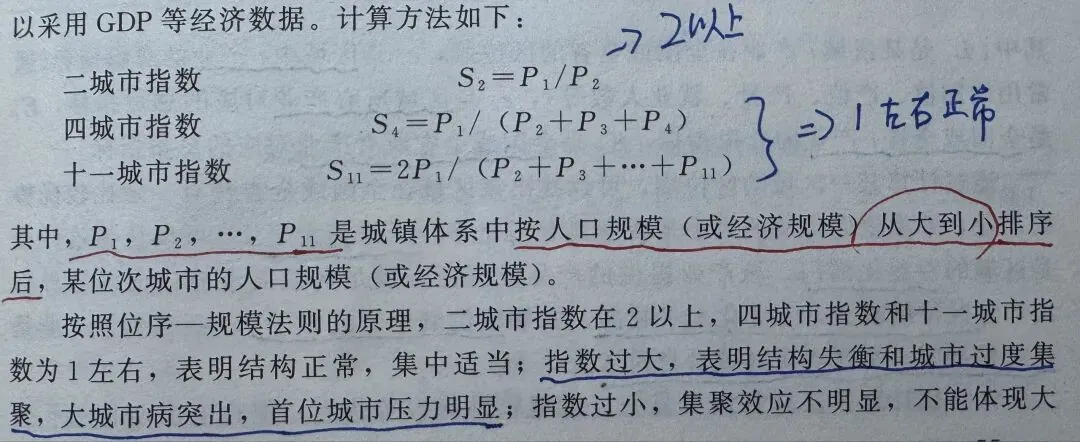 以采用 GDP 等经济数据。计算方法如下：
=> 2以上
二城市指数 S₂=P₁/P₂
四城市指数 S₄=P₁/（P₂+P₃+P₄）
=> 1左右正常
十一城市指数 S₁₁=2P₁/（P₂+P₃+…+P₁₁）
其中，P₁，P₂，…，P₁₁ 是城镇体系中按人口规模（或经济规模）从大到小排序
后，某位次城市的人口规模（或经济规模）。
按照位序—规模法则的原理，二城市指数在 2 以上，四城市指数和十一城市指
数为 1 左右，表明结构正常，集中适当；指数过大，表明结构失衡和城市过度集
聚，大城市病突出，首位城市压力明显；指数过小，集聚效应不明显，不能体现大